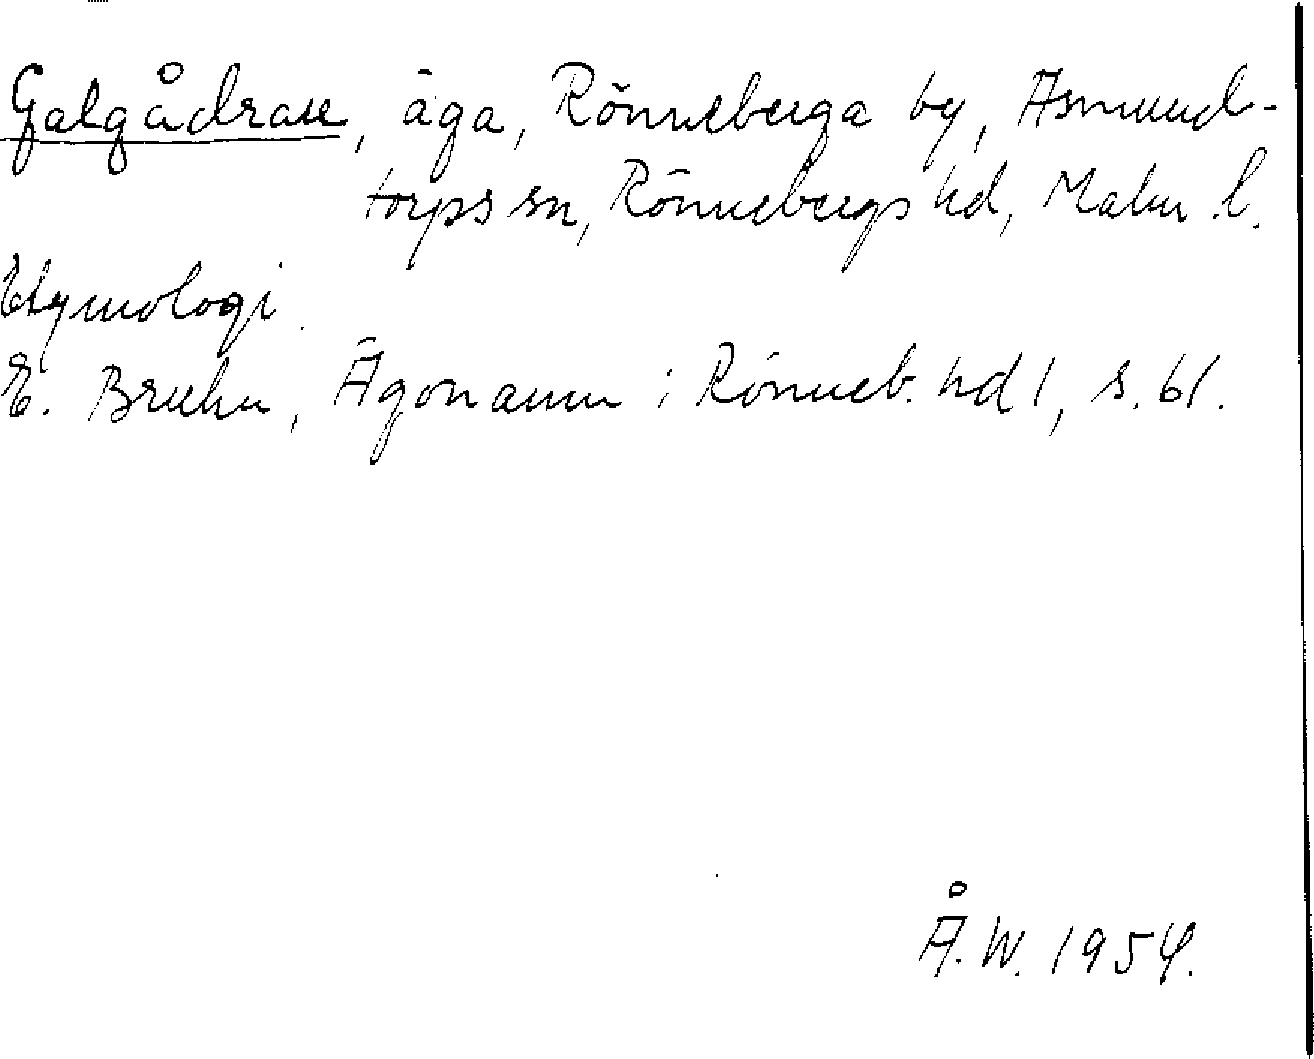 Galgådrane, äga, Rönneberga by, Asmund-
torps sn, Rönnebergs hd, Malm. l.
Etymologi.
E. Bruhn, Ägonamn i Rönneb. hd 1, s. 61.
Å. W. 1954.